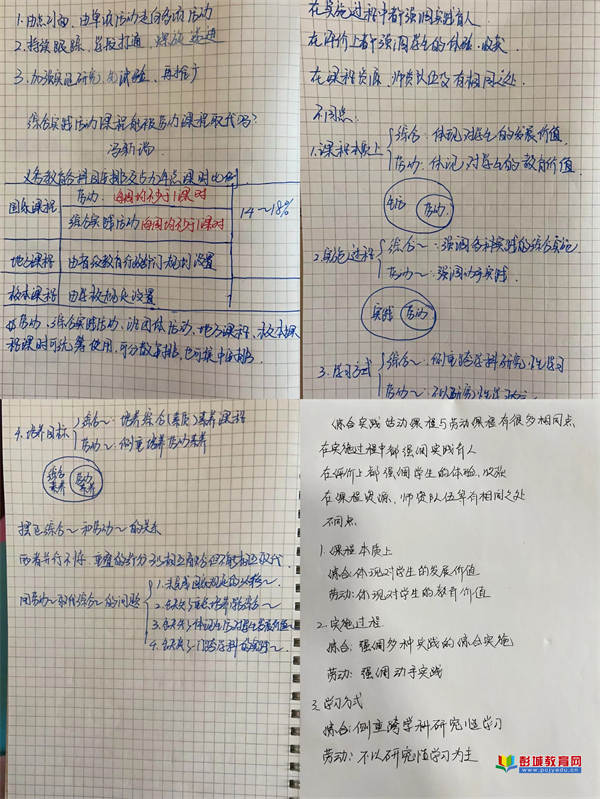 1.由点到面，由单项活动走向多项活动
2.持续跟踪，学段打通，螺旋递进
3.加强实证研究，先试验，再推广
综合实践活动课程能被劳动课程取代吗？
冯新瑞
劳动：每周均不少于1课时
国家课程
综合实践活动 每周均不少于1课时
14～18%
地方课程 由省级教育行政部门规划设置
校本课程 由学校规定设置
劳动、综合实践活动、班团体活动、地方课程、校本课
程课时可统筹使用，可分散安排，也可集中安排
在实施过程中都强调实践育人
在评价上都强调学生的体验、收获
在课程资源、师资队伍有相同之处
不同点：
1.课程本质上
综合：体现对学生的发展价值
劳动：体现对学生的教育价值
劳动
2.实施过程
综合～：强调多种实践的综合实施
劳动～：强调动手实践
实践 劳动
3.学习方式
综合～：侧重跨学科研究性学习
劳动～：不以研究性学习为主
4.培养目标
综合～：培养综合（素质）素养课程
劳动～：侧重培养劳动素养
综合素养 劳动素养
摆正综合～和劳动～的关系
用劳动～取代综合～的问题
综合实践活动课程与劳动课程有很多相同点
在实施过程中都强调实践育人
在评价上都强调学生的体验、收获
在课程资源、师资队伍等有相同之处
不同点：
1.课程本质上
综合：体现对学生的发展价值
劳动：体现对学生的教育价值
2.实施过程
综合：强调多种实践的综合实施
劳动：强调动手实践
3.学习方式
综合：侧重跨学科研究性学习
劳动：不以研究性学习为主
彭城教育网
www.pcjyedu.cn